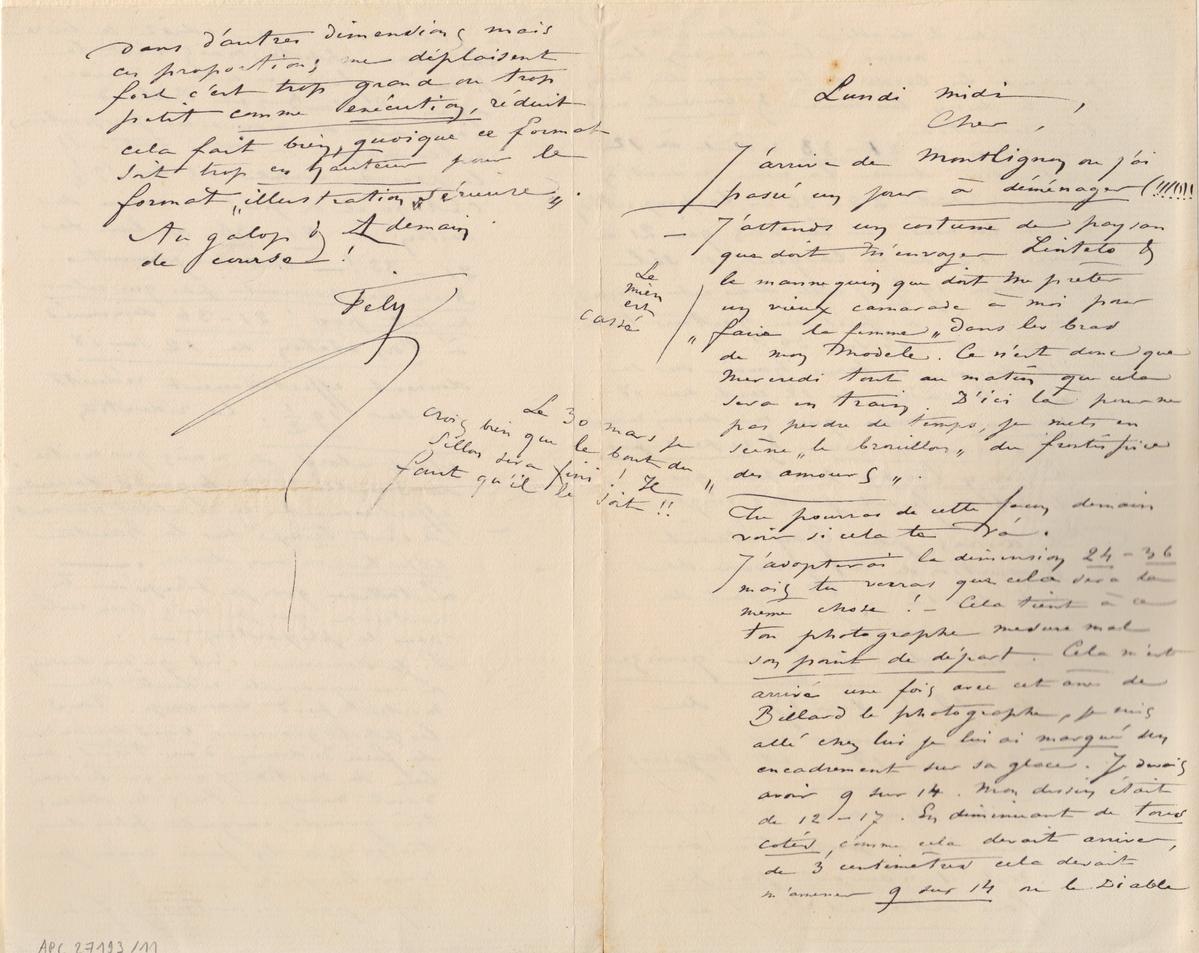 Lundi midi,
Cher,
J'arrive de Montlignon ou j'ai
passé un jour à déménager (!!!!!!
— J'attends un costume de paysan
que doit m'envoyer Linteto &
le mannequin que doit me preter
un vieux camarade à moi pour
„ faire la femme „ dans les bras
de mon modèle. Ce n'est donc que
Mercredi tout au matin que cela
sera en train. D'ici là pour ne
pas perdre de temps, je mets en
scène „ le brouillon „ du frontispice
„ des amours „.
Tu pourras de cette façon demain
voir si cela te va.
J'adopterai la dimension 24 – 36
mais tu verras que cela sera la
même chose ! – Cela tient à ce
ton photographe mesure mal
son point de départ. Cela m'est
arrivé une fois avec cet âne de
Billard le photographe, je suis
allé chez lui je lui ai marqué son
encadrement sur sa glace. Je devais
avoir 9 sur 14. Mon dessin était
de 12 – 17. En diminuant de tous
cotés, comme cela devait arriver,
de 3 centimètres cela devait
m'amener 9 sur 14 ou le Diable
Le
mien
est
cassé
dans d'autres dimensions mais
ces proportions me déplaisent
fort c'est trop grand ou trop
petit comme exécution, réduit
cela fait bien, quoique ce format
soit trop en hauteur pour le
format „ illustration sérieuse „.
Au galop & A demain
de course !
Fély
Le 30 mars je
crois bien que le bout du
Sillon sera fini ! Il
faut qu'il le soit !!
APC 27193/11